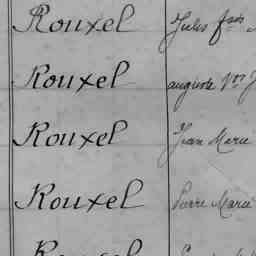 Rouxel Jules fcois
Rouxel auguste Vor J
Rouxel Jean Marie
Rouxel Pierre Marie
Rouxel